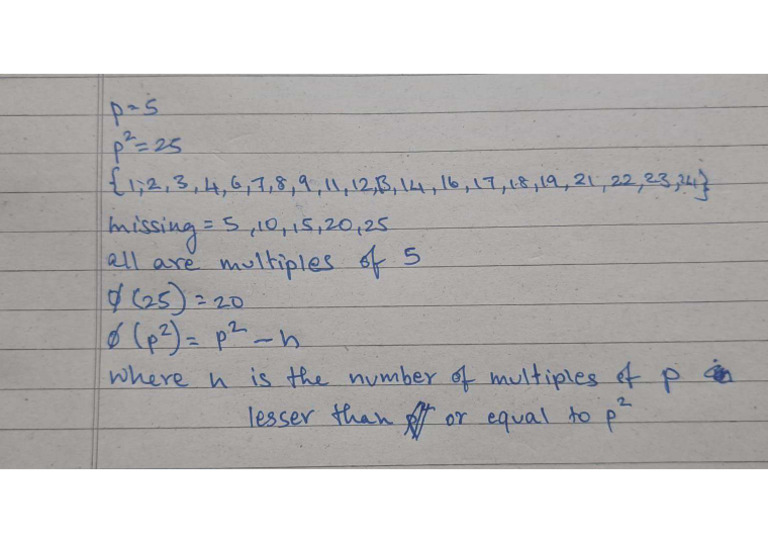 p=5
p²=25
{1,2,3,4,6,7,8,9,11,12,13,14,16,17,18,19,21,22,23,24}
missing = 5,10,15,20,25
all are multiples of 5
φ(25)=20
φ(p²)= p²-n
where n is the number of multiples of p
lesser than or equal to p²